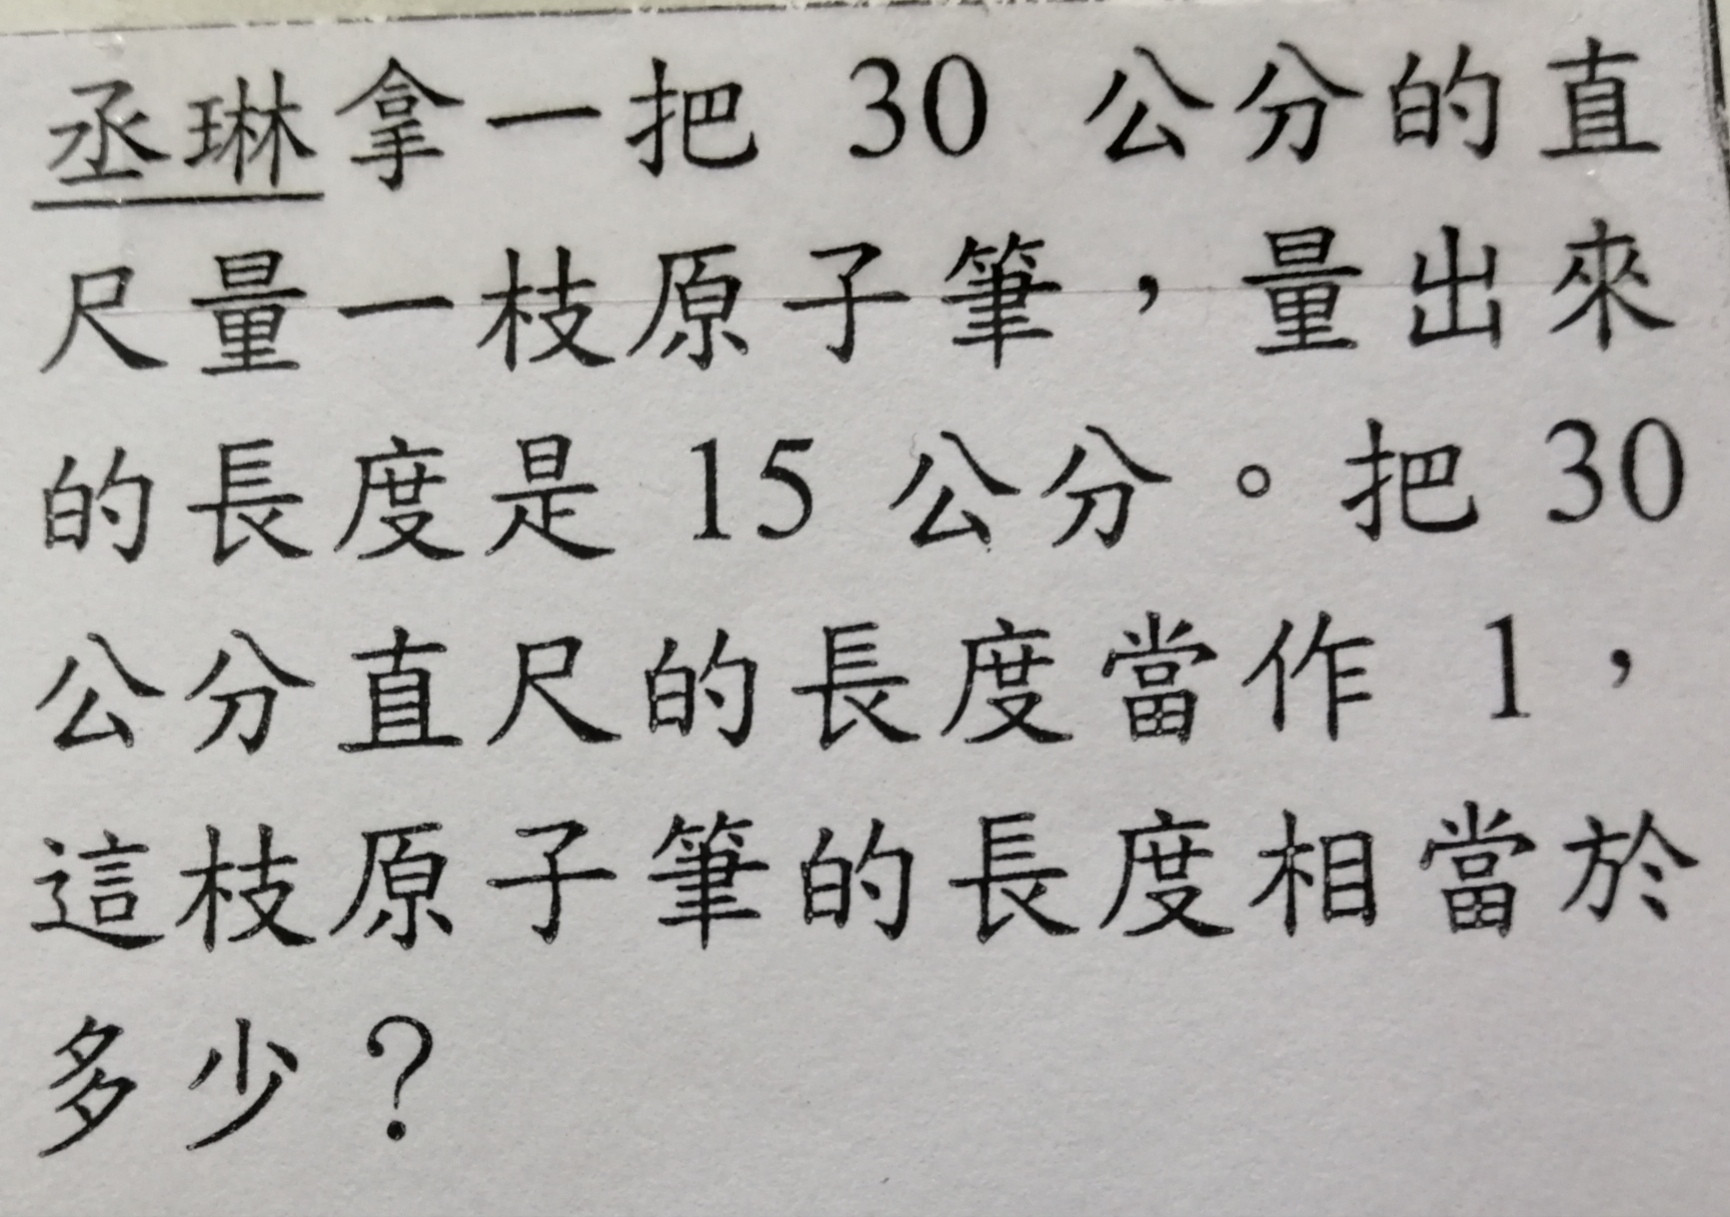 丞琳拿一把 30 公分的直
尺量一枝原子筆，量出來
的長度是 15 公分。把 30
公分直尺的長度當作 1，
這枝原子筆的長度相當於
多少？